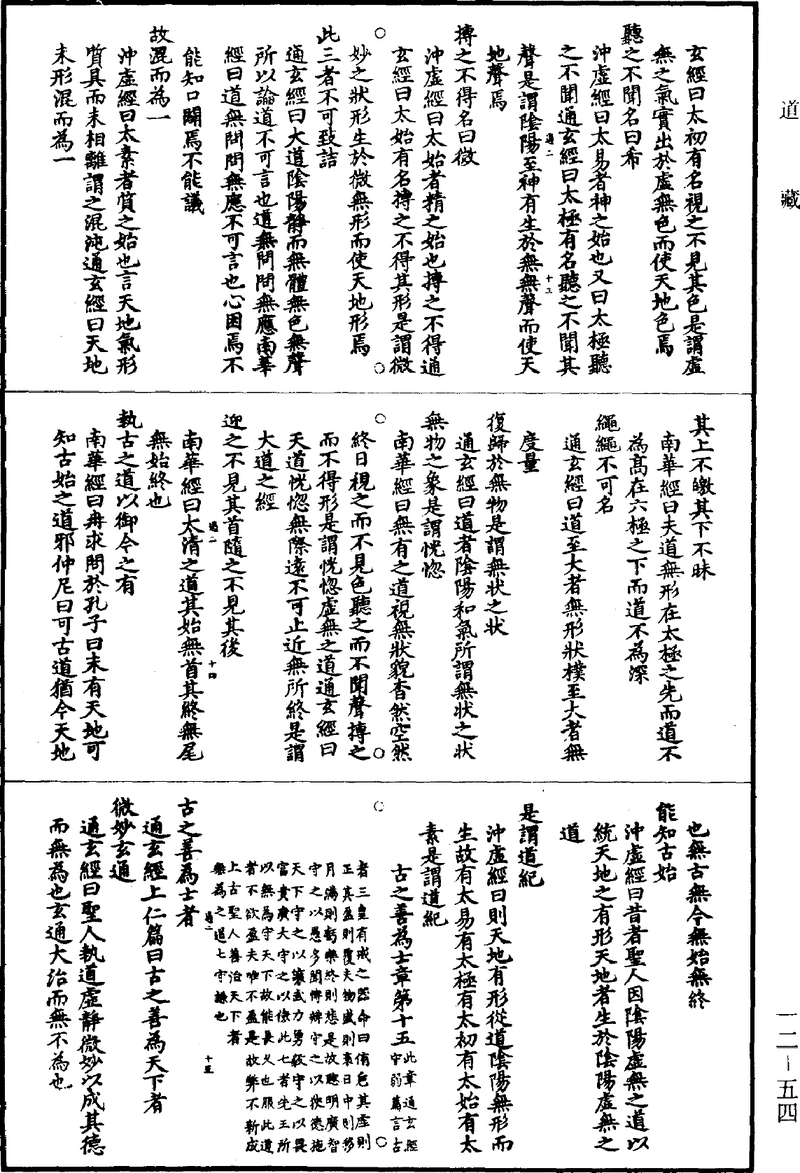 道藏
玄經曰太初有名視之不見其色是謂虛
無之氣實出於虛無色而使天地色焉
聽之不聞名曰希
沖虛經曰太易者神之始也又曰太極聽
之不聞通玄經曰太極有名聽之不聞其
聲是謂陰陽至神有生於無無聲而使天
地聲焉
搏之不得名曰微
沖虛經曰太始者精之始也摶之不得通
玄經曰太始有名摶之不得其形是謂微
妙之狀形生於微無形而使天地形焉
此三者不可致詰
通玄經曰大道陰陽靜而無體無色無聲
所以論道不可言也道無問問無應南華
經曰道無問問無應不可言也心困焉不
能知口闢焉不能議
故混而為一
沖虛經曰太素者質之始也言天地氣形
質具而未相離謂之混沌通玄經曰天地
未形混而為一
其上不皦其下不昧
南華經曰夫道無形在太極之先而道不
為高在六極之下而道不為深
繩繩不可名
通玄經曰道至大者無形狀樸至大者無
度量
復歸於無物是謂無狀之狀
通玄經曰道者陰陽和氣所謂無狀之狀
無物之象是謂恍惚
南華經曰無有之道視無狀貌杳然空然
終日視之而不見色聽之而不聞聲搏之
而不得形是謂恍惚虛無之道通玄經曰
天道恍惚無際遠不可止近無所終是謂
大道之經
迎之不見其首隨之不見其後
南華經曰太清之道其始無首其終無尾
無始終也
執古之道以御今之有
南華經曰冉求問於孔子曰未有天地可
知古始之道邪仲尼曰可古道猶今天地
也無古無今無始無終
能知古始
沖虛經曰昔者聖人因陰陽虛無之道以
統天地之有形天地者生於陰陽虛無之
道
是謂道紀
沖虛經曰則天地有形從道陰陽無形而
生故有太易有太極有太初有太始有太
素是謂道紀
古之善為士章第十五此章通玄經守弱篇言古
者三皇有戒之器命曰侑卮其虛則
正其盈則覆夫物盛則衰日中則移
月滿則虧樂終則悲是故聰明廣智
守之以愚多聞博辨守之以狹德施
天下守之以讓武力勇毅守之以畏
富貴廣大守之以儉此七者先王所
以無為守天下故能長久也服此道
者不欲盈夫唯不盈是故弊不新成
上古聖人善治天下者
無為之道七守謙也
古之善為士者
通玄經上仁篇曰古之善為天下者
微妙玄通
通玄經曰聖人執道虛靜微妙以成其德
而無為也玄通大治而無不為也
一二-五四